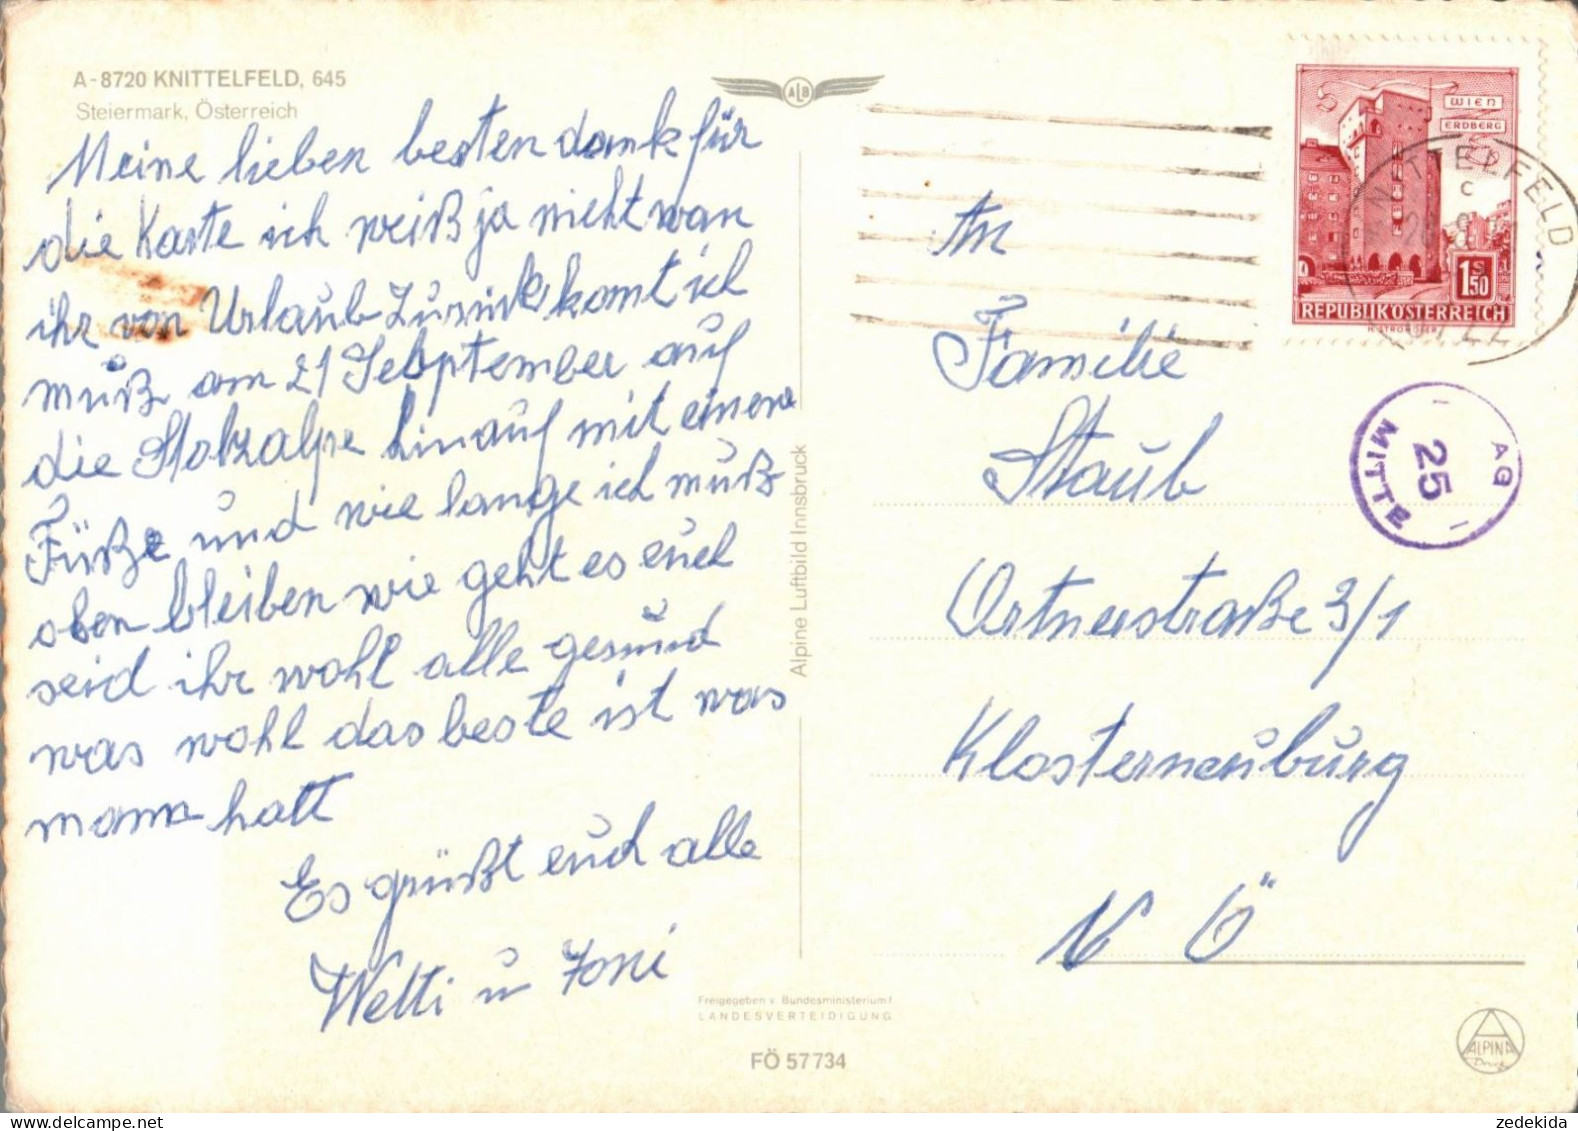 A-8720 KNITTELFELD, 645
Steiermark, Österreich
Meine lieben besten dank für
die Karte ich weiß ja nicht wan
ihr von Urlaub Zurück komt ich
muß am 21 September auf
die Stolzalpe hinauf mit einen
Füße und wie lange ich muß
oben bleiben wie geht es euch
seid ihr wohl alle gesund
was wohl das beste ist was
man hatt
Es grüßt euch alle
Wetti u Toni
Alpine Luftbild Innsbruck
Freigegeben v. Bundesministerium f.
LANDESVERTEIDIGUNG
FÖ 57 734
ALB
WIEN
ERDBERG
1.50
S
REPUBLIK ÖSTERREICH
KNITTELFELD
C
AG
25
MITTE
An
Familie
Staub
Ortnerstraße 3/1
Klosterneuburg
N Ö
ALPINA
Druck
zedekida